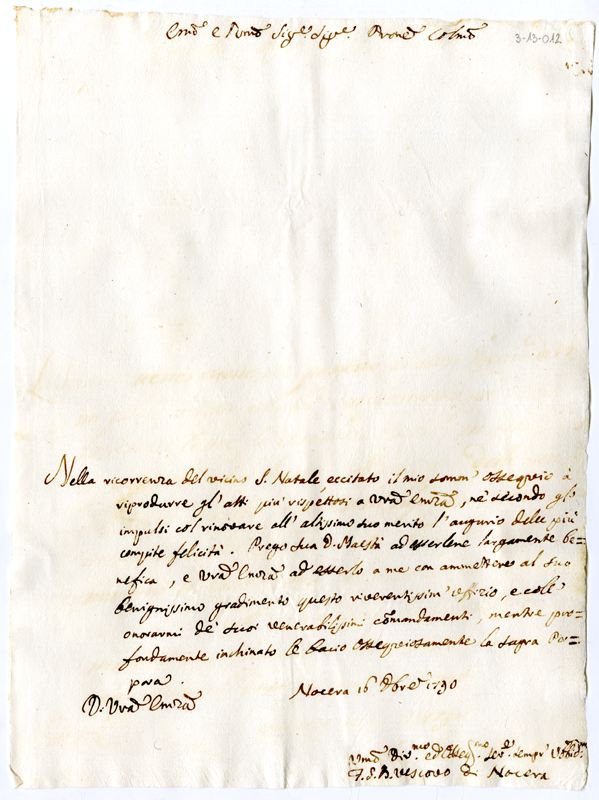 Emo e Rmo Sigr Sigr Prone Colmo
3-13-012
Nella ricorrenza del vicino S. Natale, eccitato il mio somm Ossequio à
riprodurre gl'atti più rispettosi a Vra Emza, nè secondo gl'
impulsi col rinovare all'altissimo suo merito l'augurio delle più
compite felicità. Prego Sua D. Maestà ad esserlene largamente be=
nefica, e Vra Emza ad esserlo a me con ammettere al suo
benignissimo gradimento questo riverentissim uffizio, e colle
onorarmi de' suoi venerabilissimi comandamenti, mentre pro=
fondamente inchinato le bacio Ossequiosamente la Sagra Por=
pora.
D. Vra Emza
Nocera 16 Xbre 1790
Umo Divmo ed Osseqmo Sere sempre
F. S. B. Vescovo di Nocera